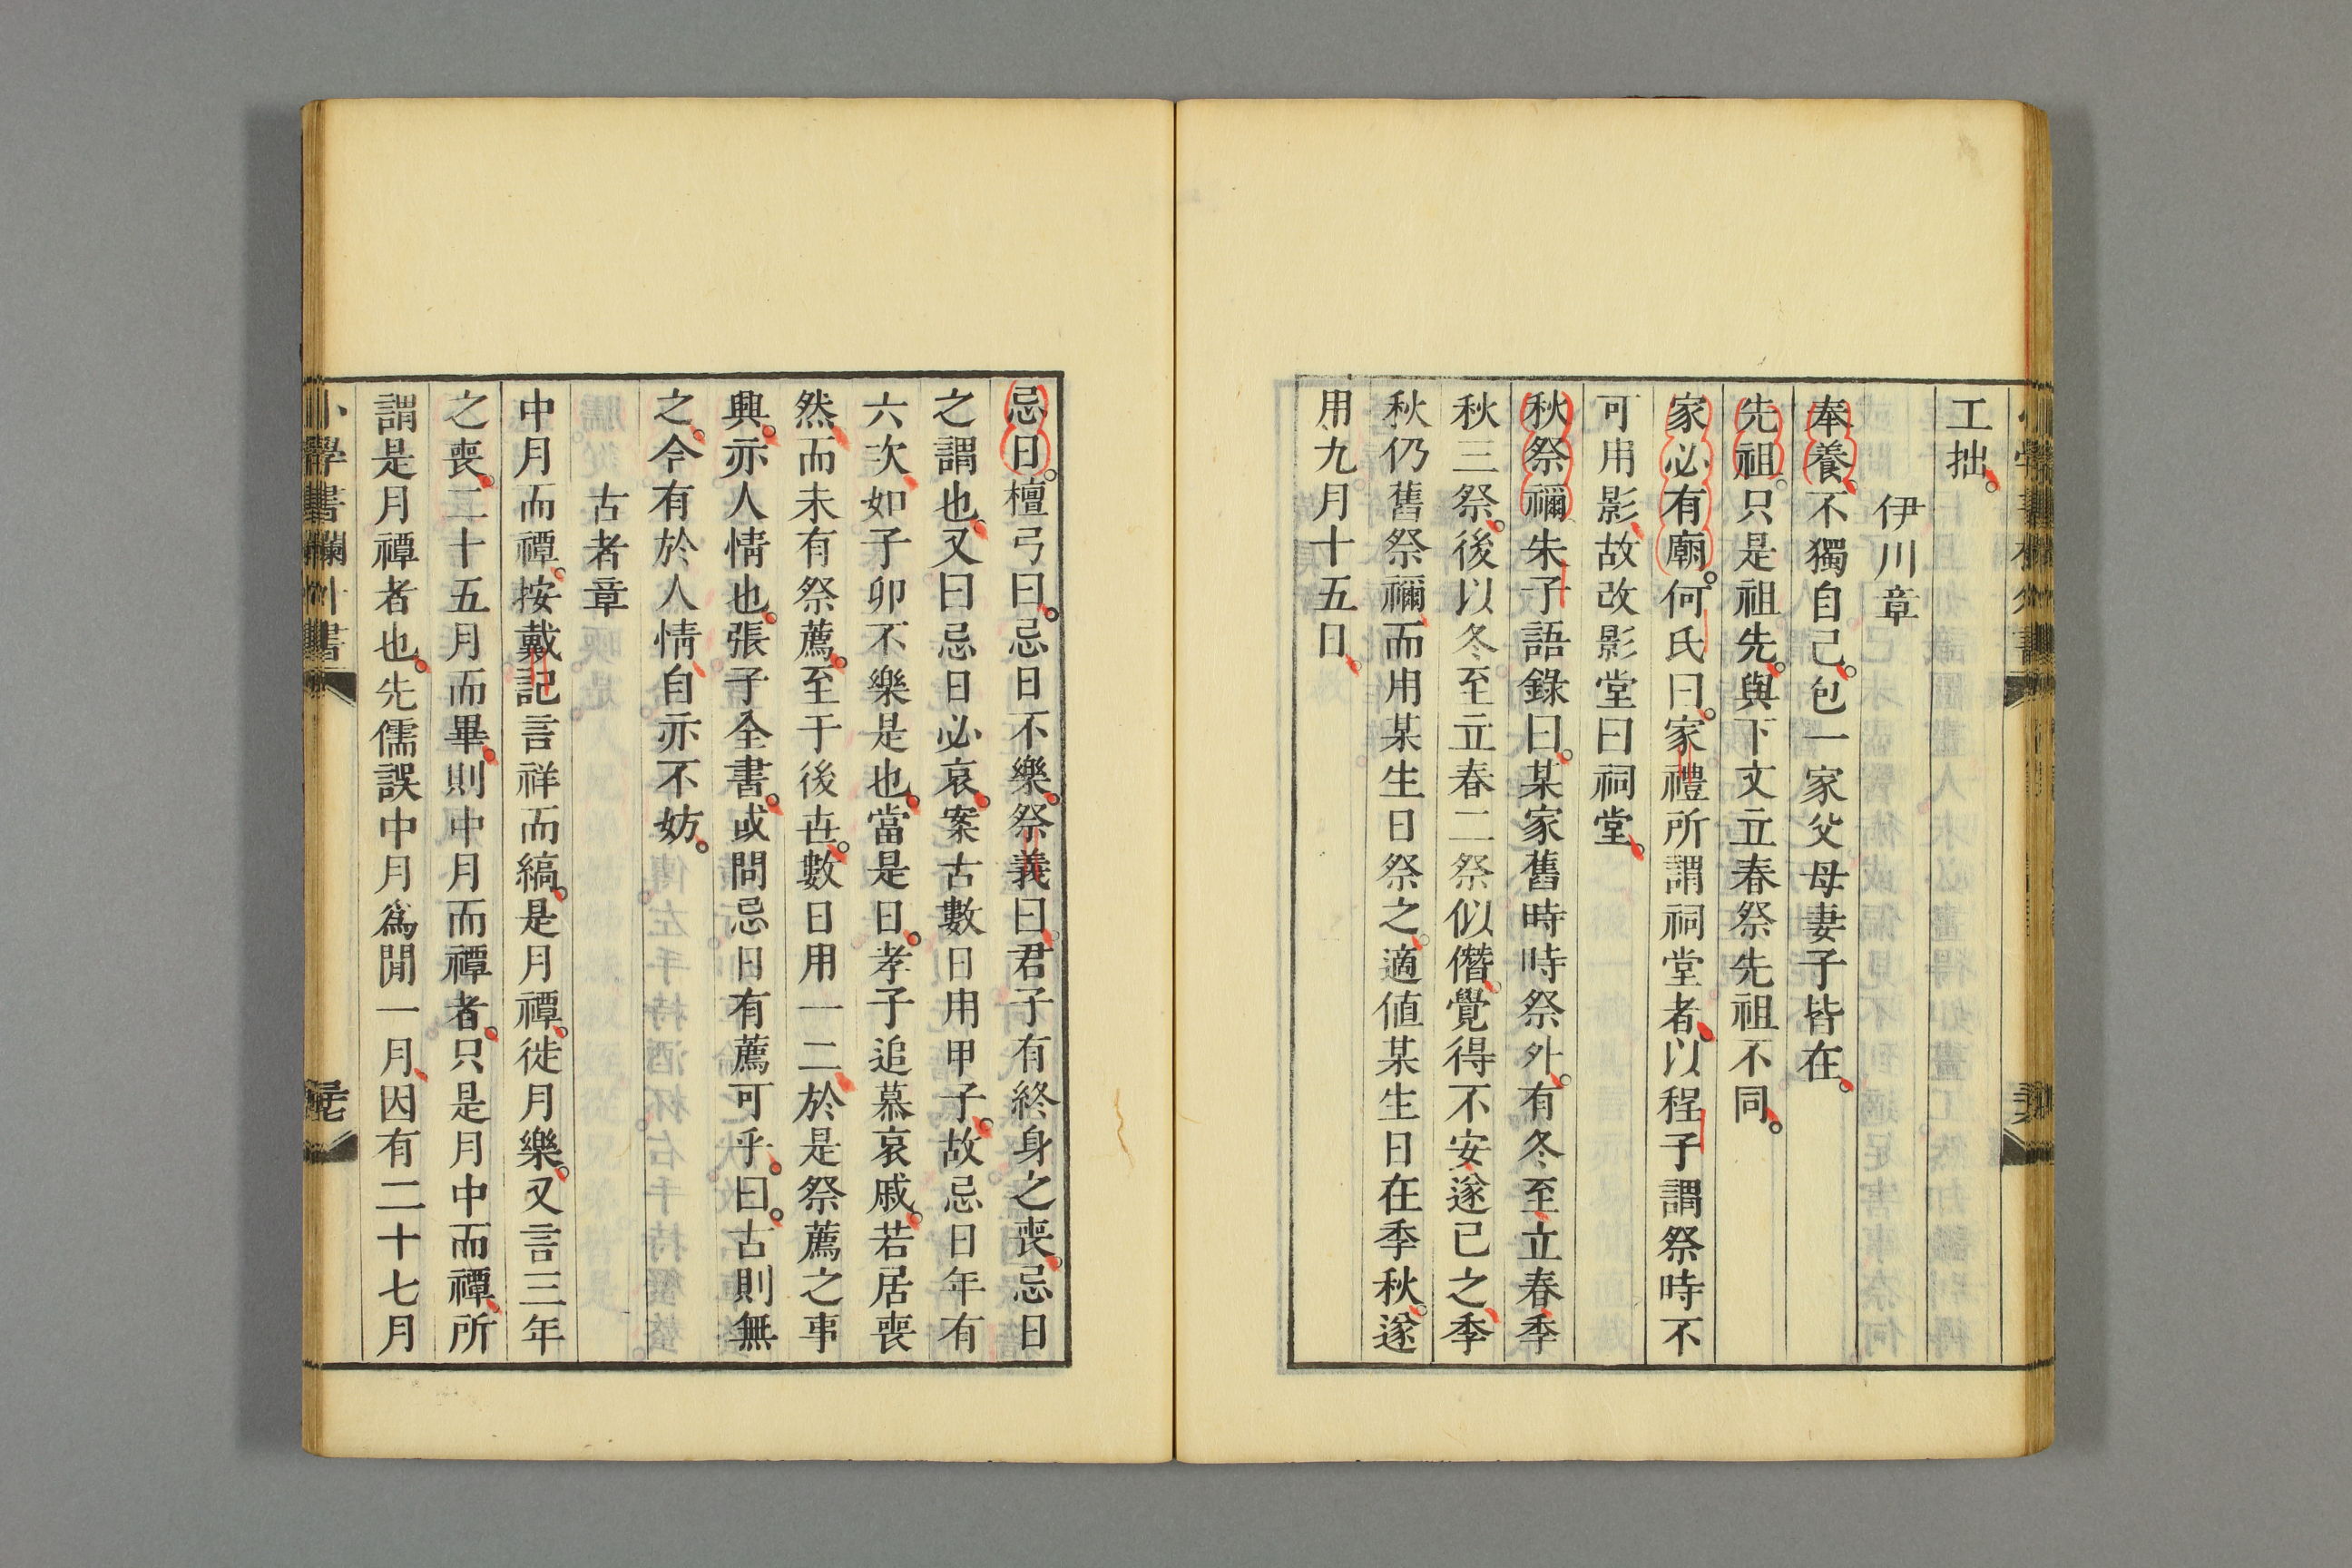 工拙。
伊川章
奉養。不獨自己。包一家父母妻子皆在。
先祖。只是祖先。與下文立春祭先祖不同。
家必有廟。何氏曰。家禮所謂祠堂者。以程子謂祭時不
可用影。故改影堂曰祠堂。
秋祭禰朱子語錄曰。某家舊時時祭外。有冬至立春季
秋三祭。後以冬至立春二祭似僭。覺得不安。遂已之。季
秋仍舊祭禰。而用某生日祭之。適値某生日在季秋。遂
用九月十五日。
忌日。檀弓曰。忌日不樂。祭義曰。君子有終身之喪。忌日
之謂也。又曰忌日必哀。案古數日用甲子。故忌日年有
六次。如子卯不樂是也。當是日。孝子追慕哀戚。若居喪
然。而未有祭薦。至于後世。數日用一二。於是祭薦之事
興。亦人情也。張子全書。或問忌日有薦可乎。曰。古則無
之。今有於人情。自亦不妨。
古者章
中月而禫。按戴記言祥而縞。是月禫。徙月樂。又言三年
之喪。二十五月而畢。則中月而禫者。只是月中而禫。所
謂是月禫者也。先儒誤中月爲閒一月。因有二十七月
小學書欄外書